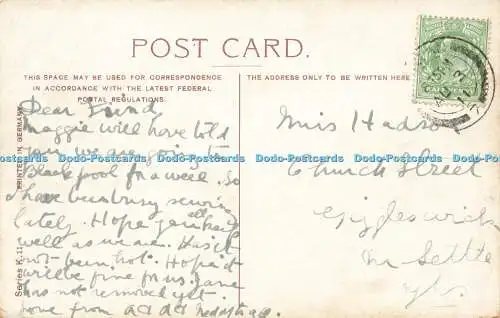 POST CARD.
THIS SPACE MAY BE USED FOR CORRESPONDENCE
IN ACCORDANCE WITH THE LATEST FEDERAL
POSTAL REGULATIONS.
THE ADDRESS ONLY TO BE WRITTEN HERE
Dear Friend
Maggie will have told
you we are going to
Blackpool for a week. So
I have been busy sewing
lately. Hope you are all
well as we are. Has it
not been hot. Hope it
will be fine for us. Jane
has not removed yet
from
Miss
Church Street
Giggleswick
Nr Settle
Yks
PRINTED IN GERMANY
Series K.11
Postcards Postcards Postcards Postcards Postcards Postcards Postcards